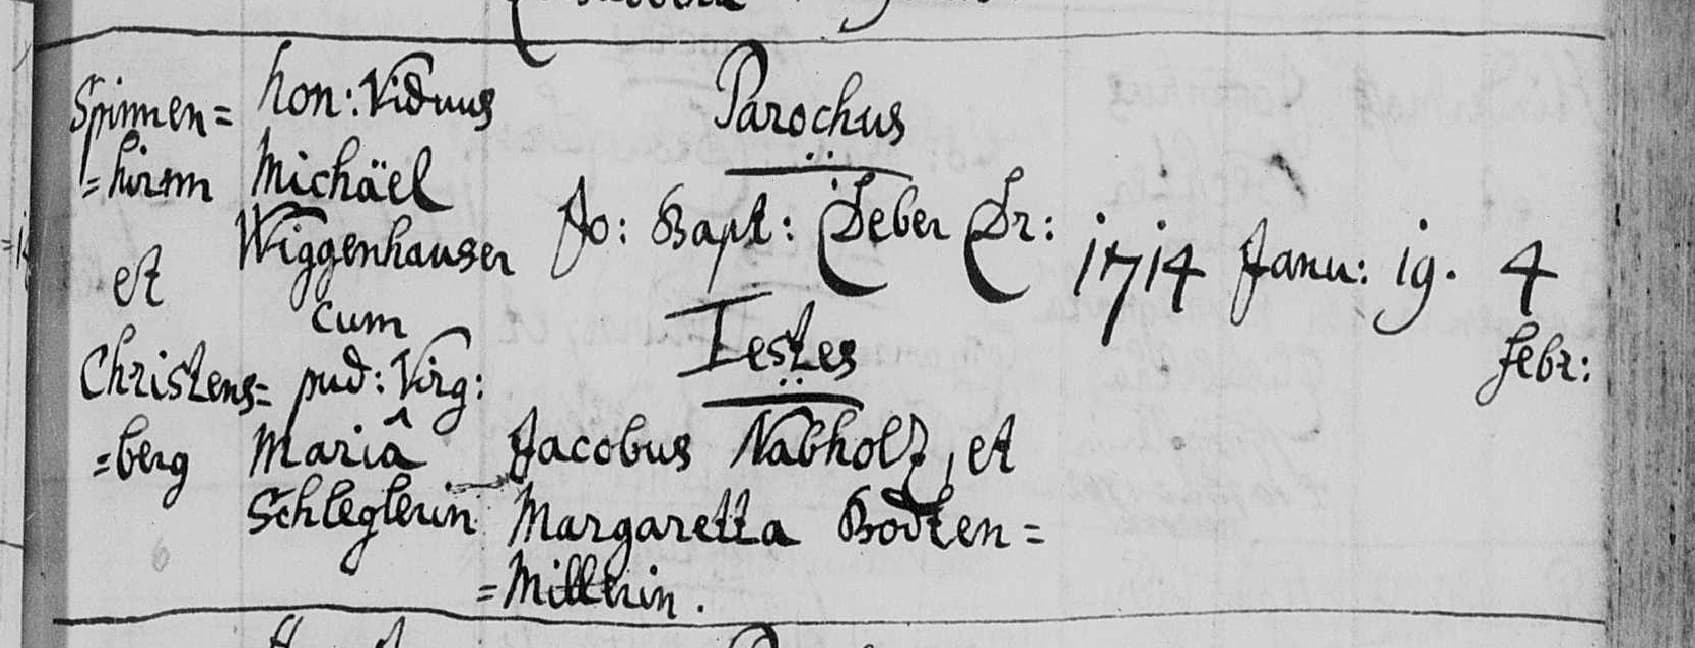 Spinnen=
=hirm
et
Christens=
=berg
hon: Viduus
Michäel
Wiggenhauser
cum
pud: Virg:
Mariâ
Schleglerin
Parochus
Jo: Bapt: Leber Lr:
Testes
Jacobus Nabholz, et
Margaretta Bodten=
=Millerin.
1714 Janu: 19. 4
febr:
6